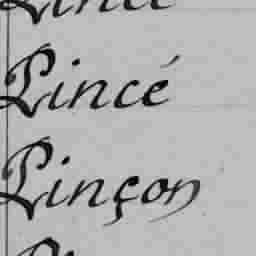 Pincé
Pinçon